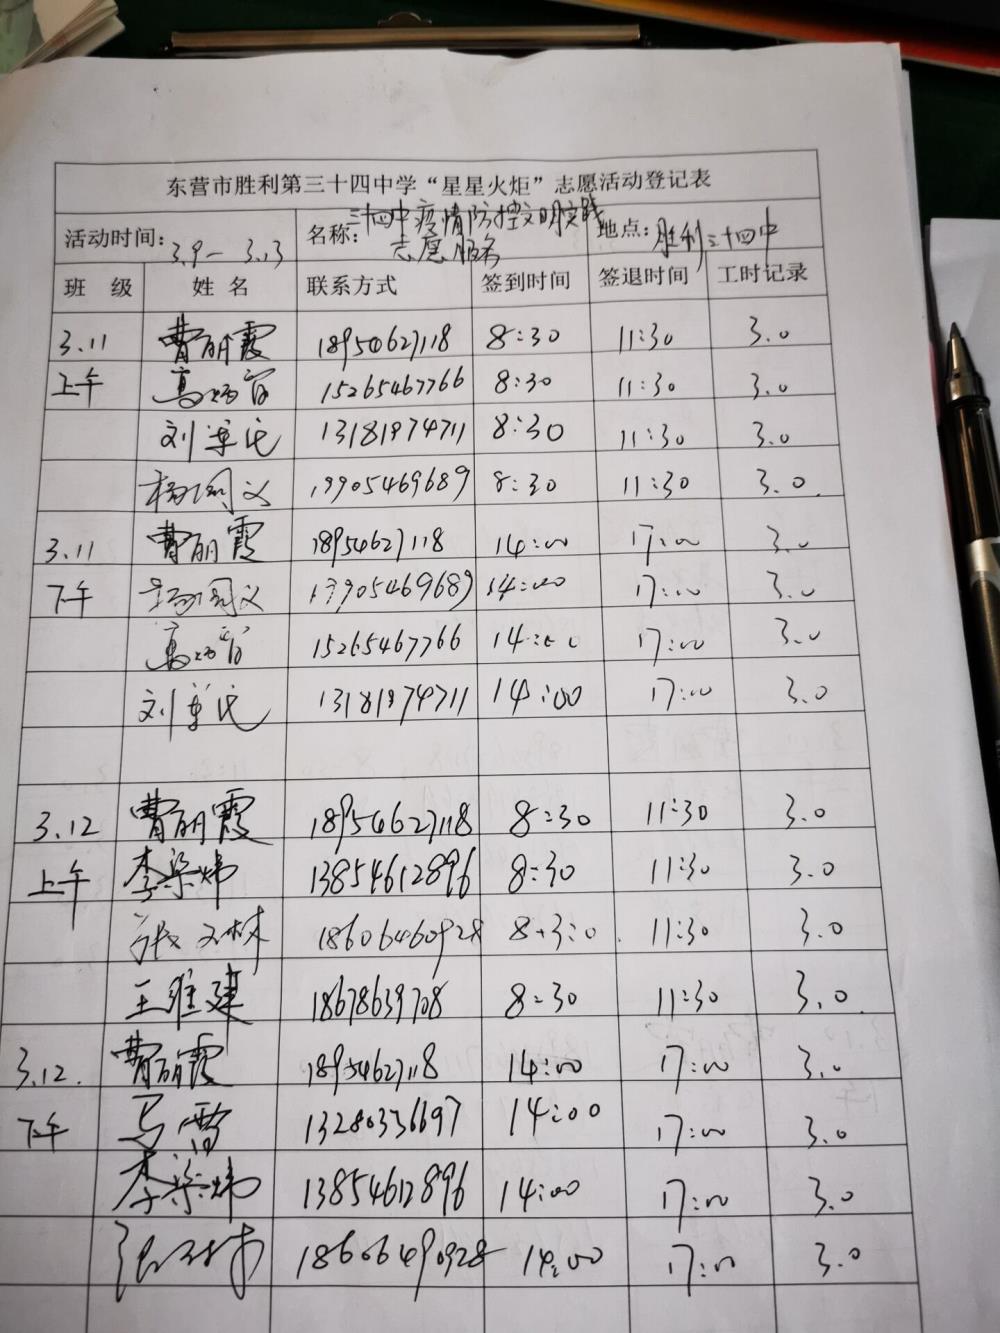 东营市胜利第三十四中学“星星火炬”志愿活动登记表
活动时间：3.9— 3.13 名称：三十四中疫情防控文明实践志愿服务 地点：胜利三十四中
班 级 姓 名 联系方式 签到时间 签退时间 工时记录
3.11 曹丽霞 18954627118 8:30 11:30 3.0
上午 高 15265467766 8:30 11:30 3.0
刘 13181974711 8:30 11:30 3.0
杨 义 8:30 11:30 3.0
3.11 曹丽霞 18954627118 14:00 17:00 3.0
下午 义 14:00 17:00 3.0
高 15265467766 14:00 17:00 3.0
刘 13181974711 14:00 17:00 3.0
3.12 曹丽霞 18954627118 8:30 11:30 3.0
上午 李梁炜 13854612896 8:30 11:30 3.0
张 林 8:30 11:30 3.0
王维建 18678639708 8:30 11:30 3.0
3.12. 曹丽霞 18954627118 14:00 17:00 3.0
下午 马雷 13280336697 14:00 17:00 3.0
李梁炜 13854612896 14:00 17:00 3.0
14:00 17:00 3.0